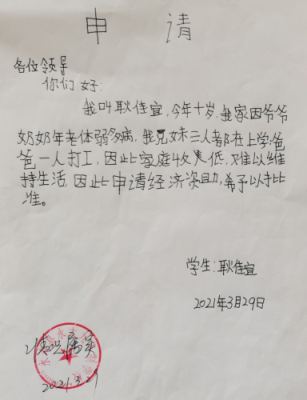 申请
各位领导
你们好
我叫耿佳宜,今年十岁,我家因爷爷
奶奶年老体弱多病,我兄妹三人都在上学爸
爸一人打工,因此家庭收入低,难以维
持生活,因此申请经济资助,希予以批
准。
学生:耿佳宜
2021年3月29日
情况属实
2021.3.29